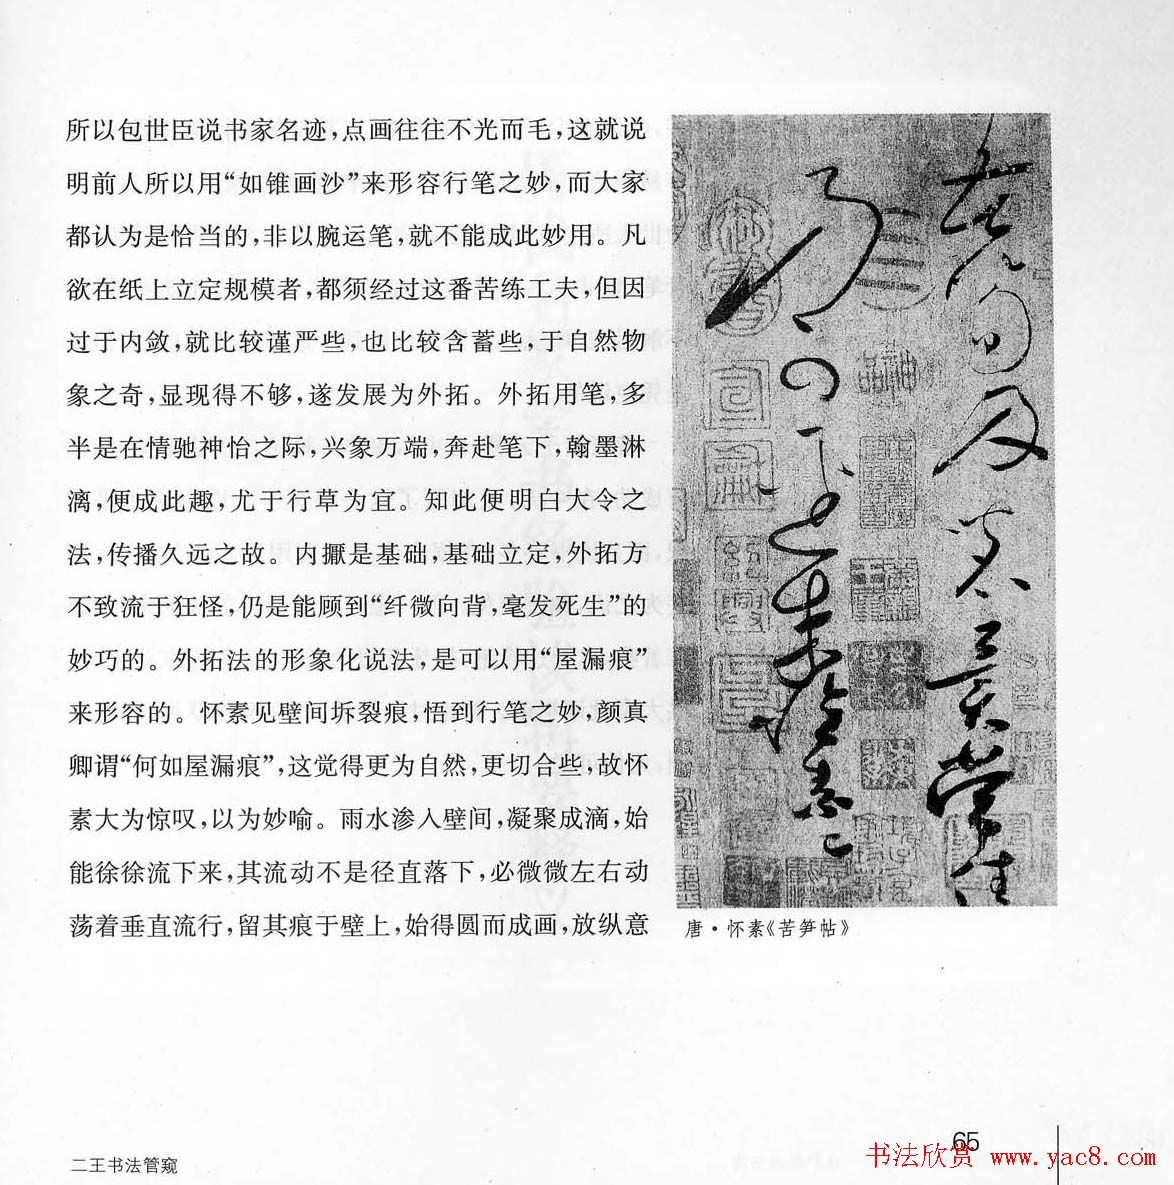 所以包世臣说书家名迹，点画往往不光而毛，这就说
明前人所以用“如锥画沙”来形容行笔之妙，而大家
都认为是恰当的，非以腕运笔，就不能成此妙用。凡
欲在纸上立定规模者，都须经过这番苦练工夫，但因
过于内敛，就比较谨严些，也比较含蓄些，于自然物
象之奇，显现得不够，遂发展为外拓。外拓用笔，多
半是在情驰神怡之际，兴象万端，奔赴笔下，翰墨淋
漓，便成此趣，尤于行草为宜。知此便明白大令之
法，传播久远之故。内擫是基础，基础立定，外拓方
不致流于狂怪，仍是能顾到“纤微向背，毫发死生”的
妙巧的。外拓法的形象化说法，是可以用“屋漏痕”
来形容的。怀素见壁间坼裂痕，悟到行笔之妙，颜真
卿谓“何如屋漏痕”，这觉得更为自然，更切合些，故怀
素大为惊叹，以为妙喻。雨水渗入壁间，凝聚成滴，始
能徐徐流下来，其流动不是径直落下，必微微左右动
荡着垂直流行，留其痕于壁上，始得圆而成画，放纵意
唐·怀素《苦笋帖》
二王书法管窥
65
书法欣赏 www.yac8.com